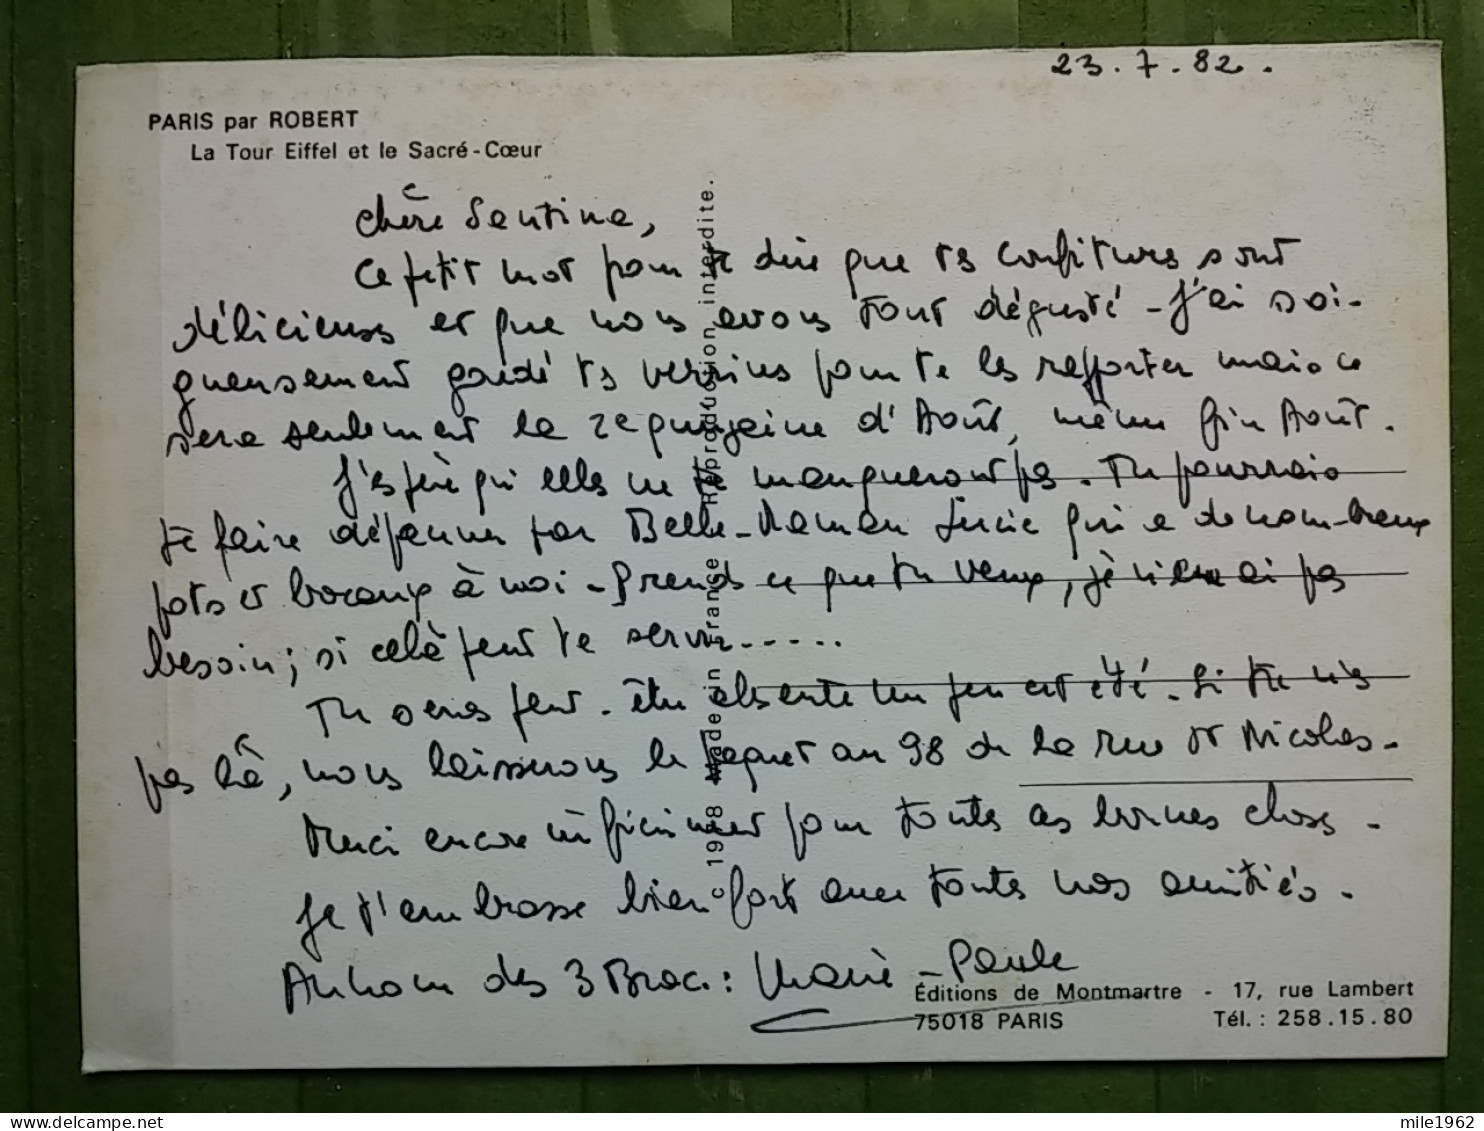 23.7.82.
PARIS par ROBERT
La Tour Eiffel et le Sacré-Cœur
Chère Santina,
Ce petit mot pour te dire que tes confitures sont
délicieuses et que nous avons tout dégusté - J'ai soi-
gneusement gardé tes verrines pour te les rapporter mais ce
sera seulement la 2e quinzaine d'Août, même fin Août.
J'espère qu'elles ne te manqueront pas. Tu pourrais
te faire dépanner par Belle-Maman Lucie qui a de nombreux
pots et bocaux à moi - Prends ce que tu veux, je n'en ai pas
besoin; si celà peut te servir.....
Tu seras peut-être absente un peu cet été. Si tu n'es
pas là, nous laisserons le paquet au 98 de la rue St Nicolas-
Merci encore infiniment pour toutes ces bonnes choses -
Je t'embrasse bien fort avec toutes nos amitiés.
Au nom des 3 Brac.: Marie-Paule
c 1978 Made in France Reproduction interdite.
Éditions de Montmartre - 17, rue Lambert
75018 PARIS Tél.: 258.15.80
mile1962